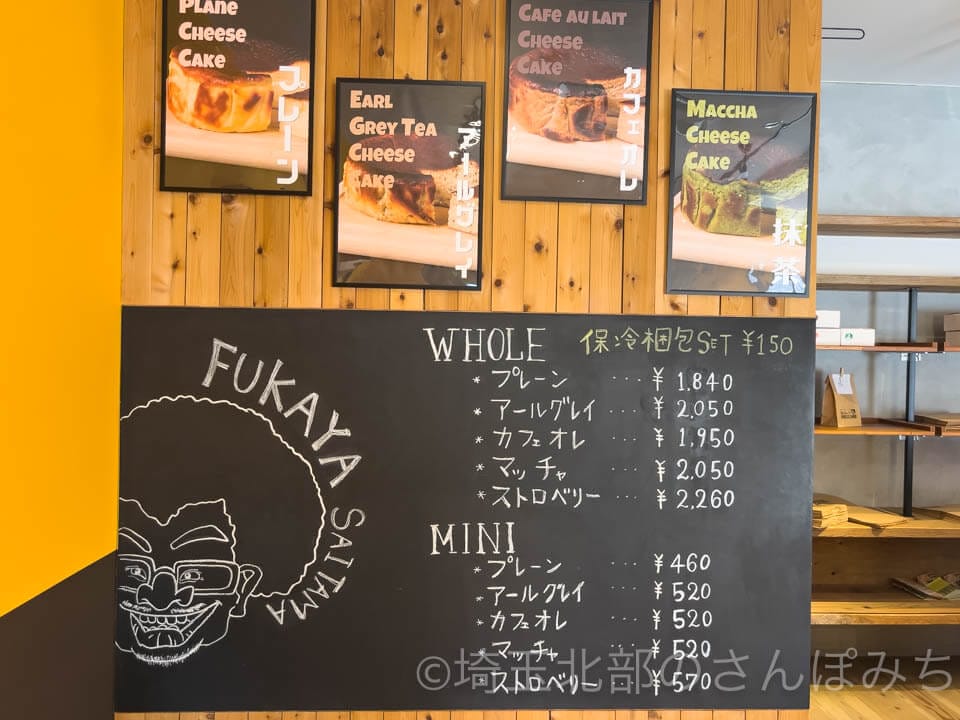 PLANE
CHEESE
CAKE
プレーン
EARL
GREY TEA
CHEESE
CAKE
アールグレイ
CAFE AU LAIT
CHEESE
CAKE
カフェオレ
MACCHA
CHEESE
CAKE
抹茶
FUKAYA
SAITAMA
WHOLE 保冷梱包SET ¥150
* プレーン ... ¥ 1.840
* アールグレイ ... ¥ 2,050
* カフェオレ ... ¥ 1,950
* マッチャ ... ¥ 2,050
* ストロベリー ... ¥ 2,260
MINI
* プレーン ... ¥460
* アールグレイ ... ¥520
* カフェオレ ... ¥520
* マッチャ ... ¥520
* ストロベリー ... ¥570
©埼玉北部のさんぽみち